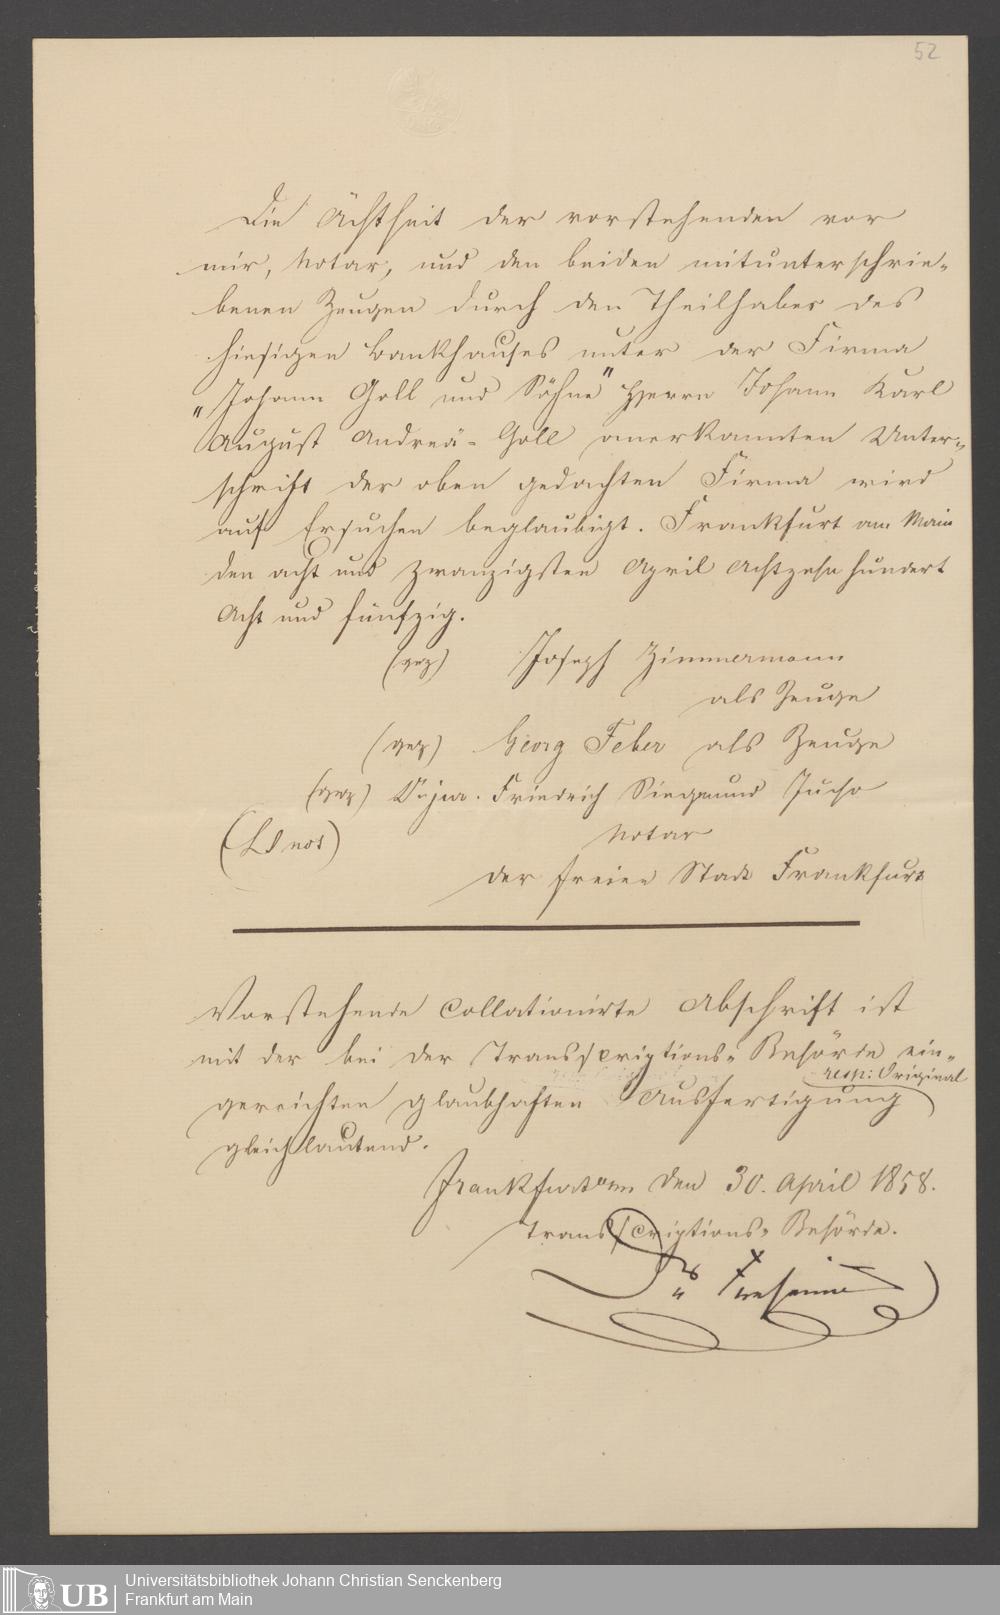 52
Die Ächtheit der vorstehenden vor
mir, Notar, und den beiden mitunterschrie-
benen Zeugen durch den Theilhaber des
hiesigen Bankhauses unter der Firma
"Johann Goll und Söhne" Herrn Johann Karl
August Andreä-Goll anerkannten Unter-
schrift der oben gedachten Firma wird
auf Ersuchen beglaubigt. Frankfurt am Main
den acht und zwanzigsten April Achtzehnhundert
Acht und fünfzig.
(gez) Joseph Zimmermann
als Zeuge
(gez) Georg Feber als Zeuge
(gez) Dr jur. Friedrich Siegmund Jucho
Notar
(LS not)
der freien Stadt Frankfurt
Vorstehende collationirte Abschrift ist
mit der bei der Transscriptions-Behörde ein-
resp: Original
gereichten glaubhaften Ausfertigung
gleichlautend.
Frankfurt a/m den 30. April 1858.
Transscriptions-Behörde.
Dr Fresenius
UB
Universitätsbibliothek Johann Christian Senckenberg
Frankfurt am Main